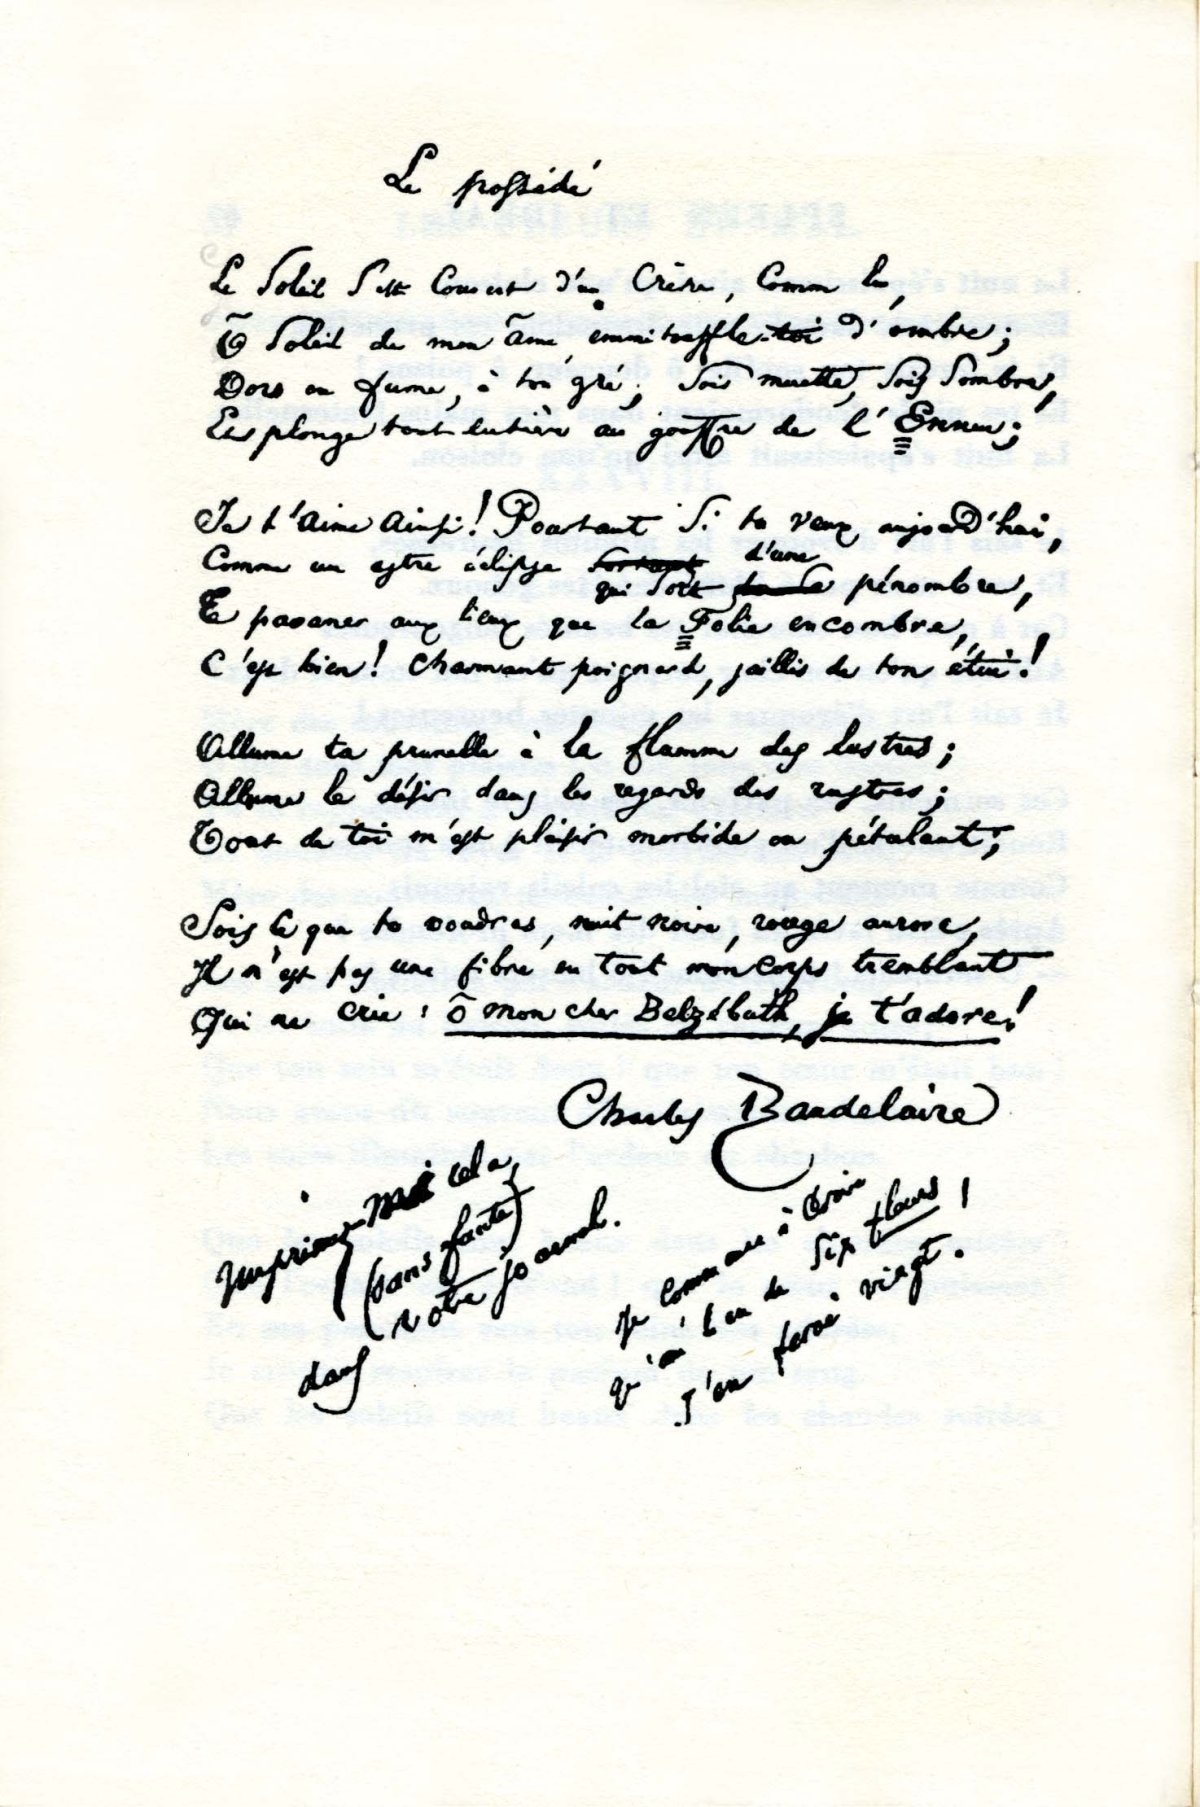 Le possédé
Le Soleil s'est Couvert d'un Crêpe, Comme lui,
Ô Soleil de mon âme, emmitouffle-toi d'ombre;
Dors ou fume, à ton gré; Sois muette, Sois Sombre,
Et plonge tout entière au gouffre de l'Ennui;
Je t'aime ainsi! Pourtant Si tu veux aujourd'hui,
Comme un astre éclipsé sortant d'une
qui Sort de Sa pénombre,
Te pavaner aux lieux que la Folie encombre,
C'est bien! Charmant poignard, jaillis de ton étui!
Allume ta prunelle à la flamme des lustres;
Allume le désir dans les regards des rustres;
Tout de toi m'est plaisir morbide ou pétulant;
Sois ce que tu voudras, nuit noire, rouge aurore,
Il n'est pas une fibre en tout mon corps tremblant
Qui ne crie: ô mon cher Belzébuth, je t'adore!
Charles Baudelaire
Imprimez-moi cela,
(sans faute)
dans votre journal.
Je commence à croire
qu'au lieu de Six fleurs,
J'en ferai vingt.